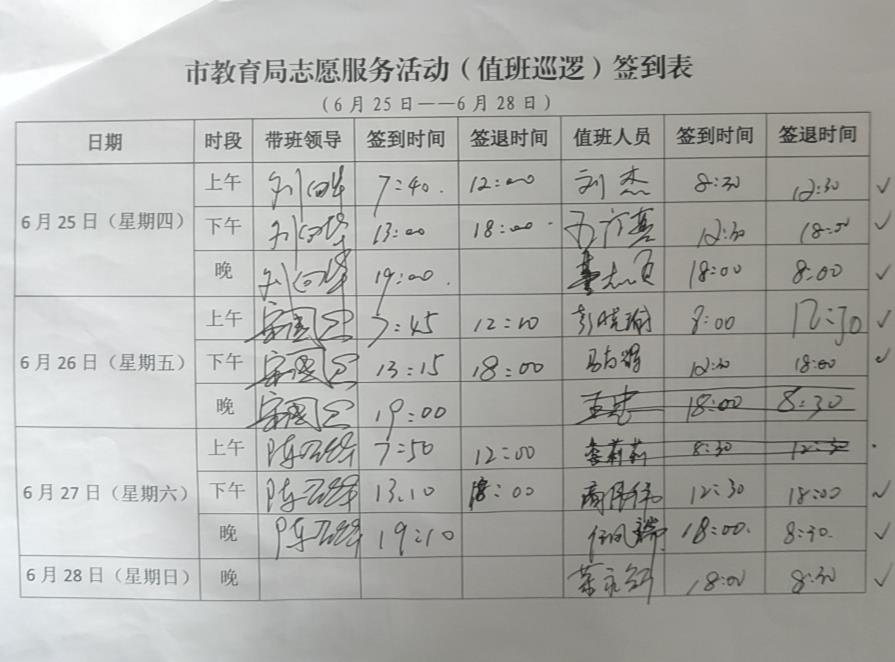 市教育局志愿服务活动（值班巡逻）签到表
（6月25日——6月28日）
日期 时段 带班领导 签到时间 签退时间 值班人员 签到时间 签退时间
6月25日（星期四） 上午 7:40. 12:00 刘杰 8:30 12:30 ✓
下午 13:00 18:00 12:30 18:00 ✓
晚 19:00. 18:00 8:00 ✓
6月26日（星期五） 上午 7:45 12:10 彭晓瑜 8:00 12:30 ✓
下午 13:15 18:00 12:30 18:00 ✓
晚 19:00 18:00 8:30
6月27日（星期六） 上午 7:50 12:00 李莉莉 8:30 12:30
下午 13.10 18:00 12:30 18:00 ✓
晚 19:10 18:00. 8:30. ✓
6月28日（星期日） 晚 18:00 8:30 ✓